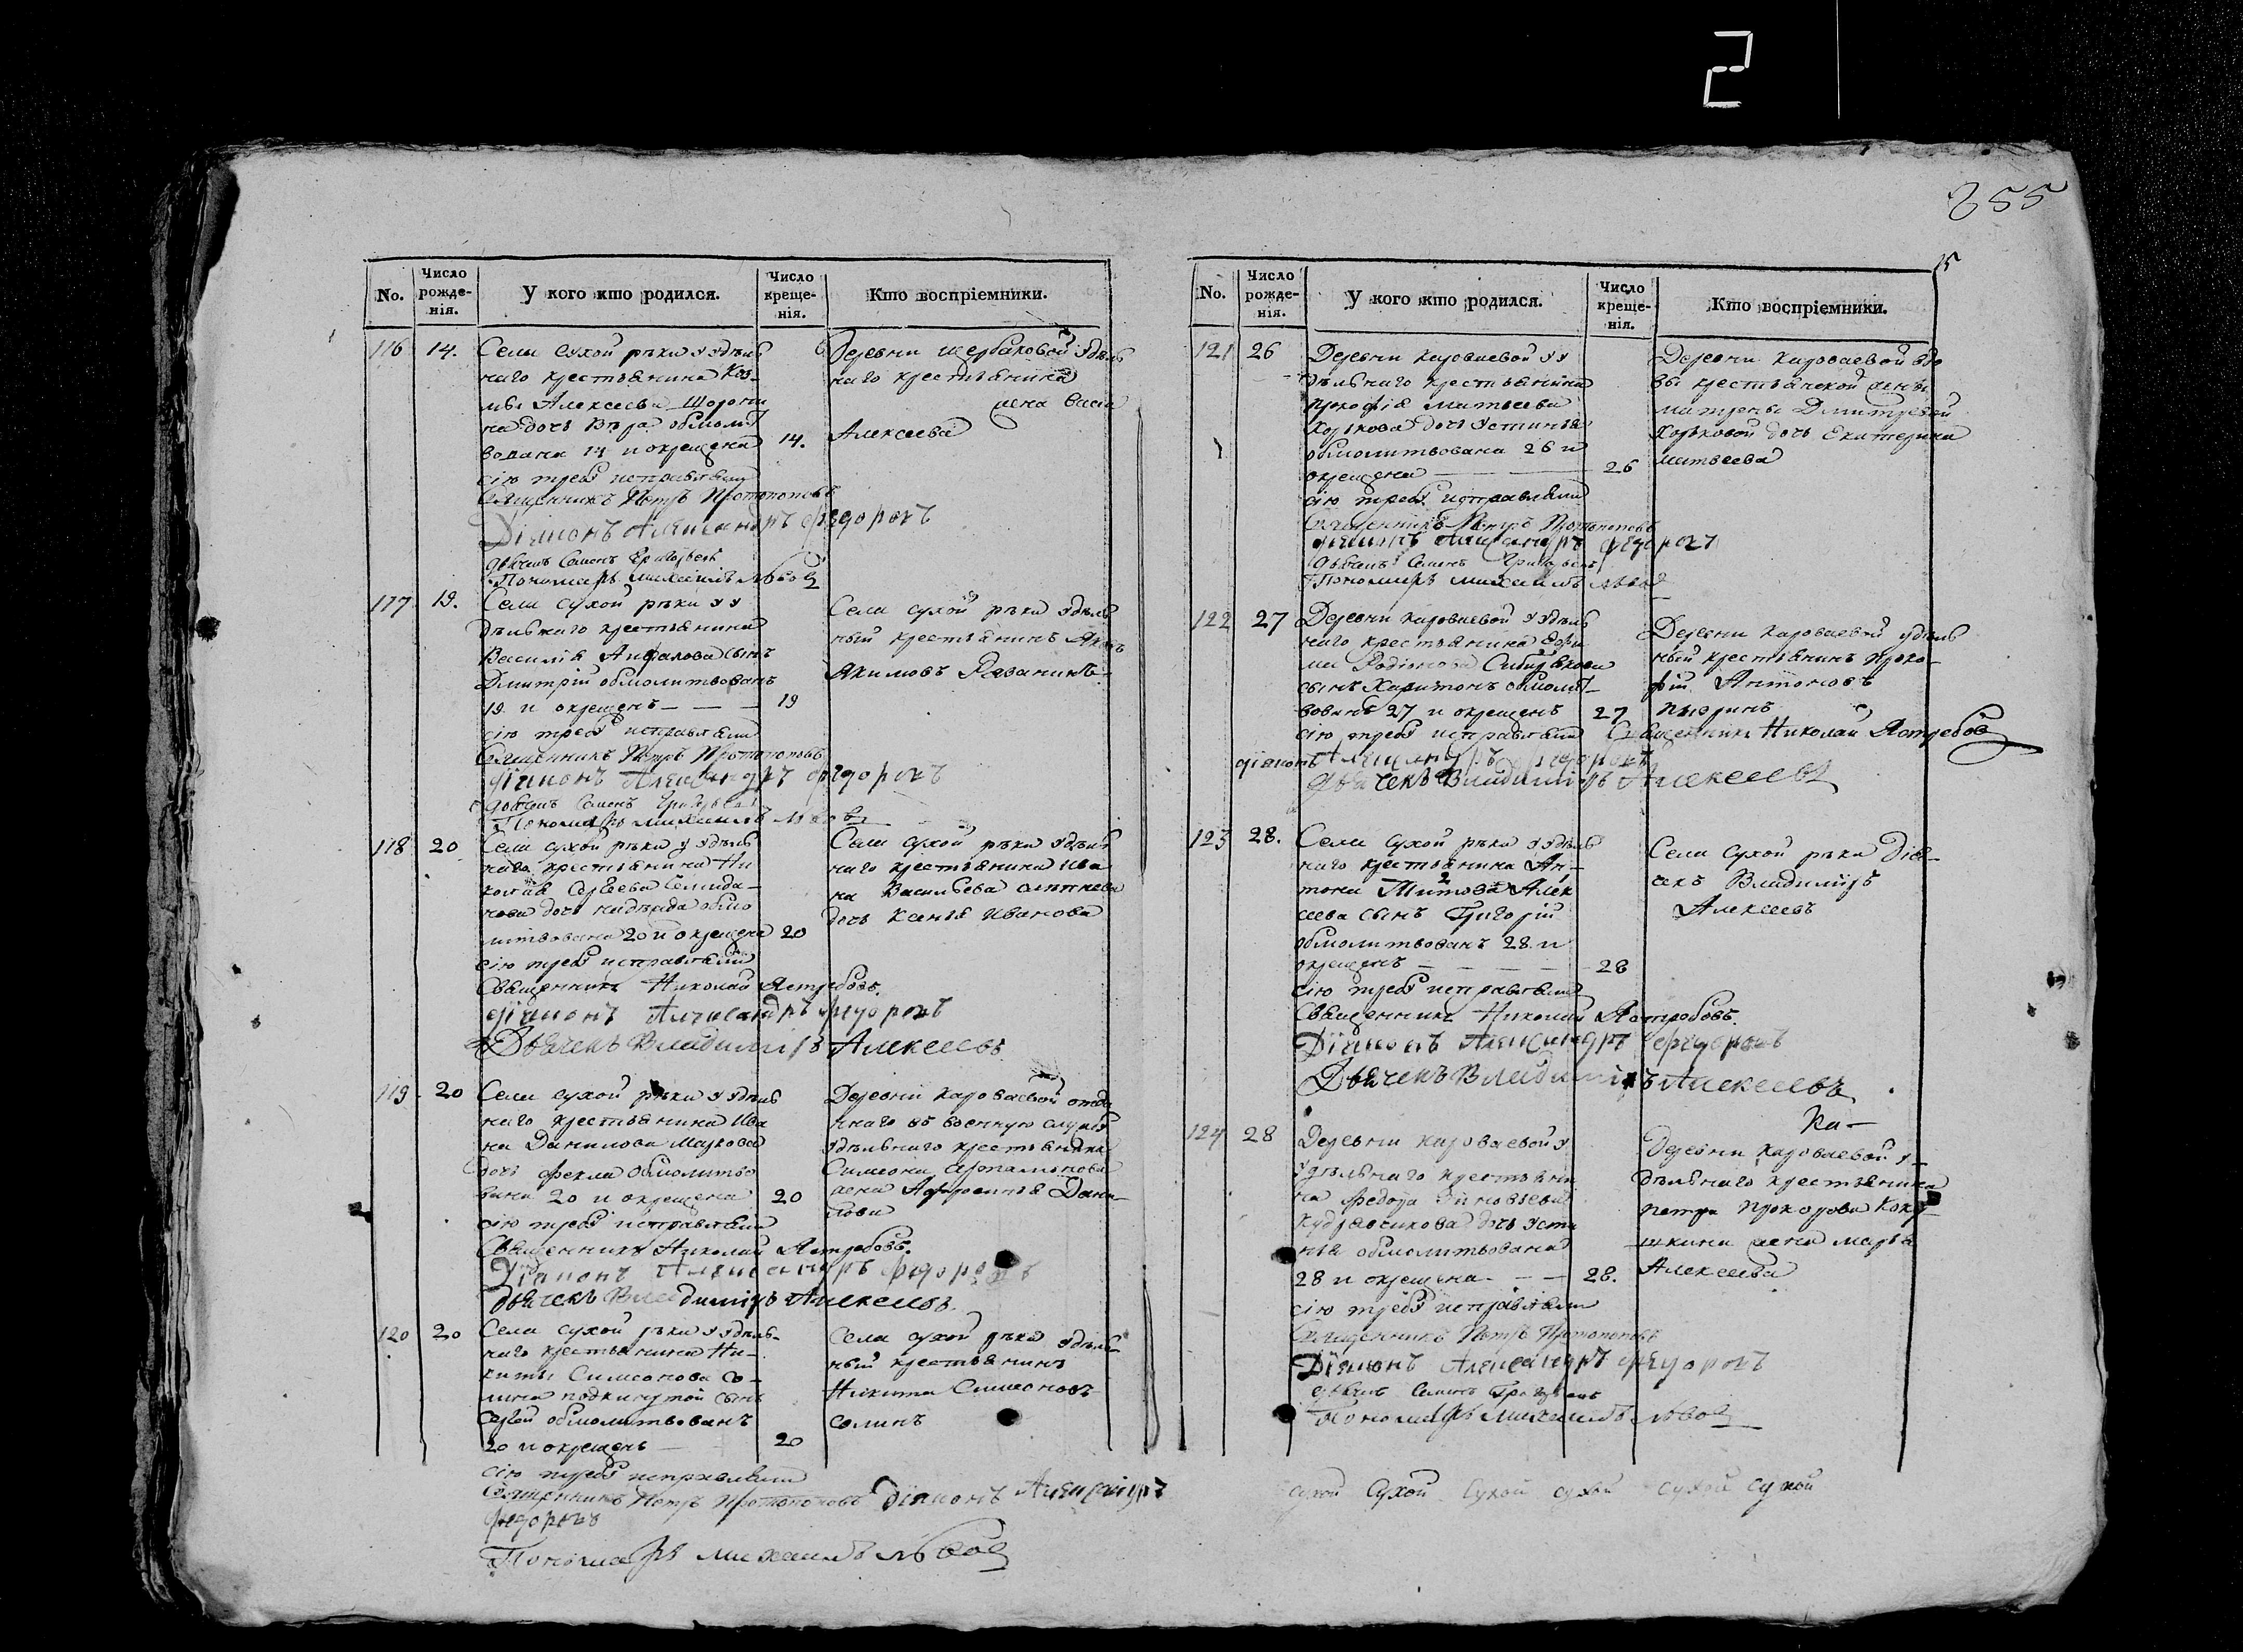 2
255
15
No.
Число рожде-нія.
У кого кто родился.
Число креще-нія.
Кто воспріемники.
116 14.
Села Сухой рѣки у удѣль
наго крестьянина Коз-
мы Алексеева
на дочь Вѣра обмолит
вована 14 и окрещена 14.
сію треб исправляли
Священникъ Петръ Протопоповъ
Діаконъ Александръ Федоровъ
дьячекъ Семенъ Григорьевъ
Пономарь Михаилъ Львовъ
Деревни Щербаковой удѣль
наго крестьянина
жена
Алексеева
117 19.
Села Сухой рѣки у у
дѣльнаго крестьянина
Василія сынъ
Дмитрій обмолитвованъ
19 и окрещенъ — — — 19
сію треб исправляли
Священникъ Петръ Протопоповъ
діаконъ Александръ Федоровъ
дьячекъ Семенъ Григорьевъ
Пономарь Михаилъ Львовъ
Села Сухой рѣки удѣль
ный крестьянинъ
Якимовъ
118 20
Села Сухой рѣки у удѣль
наго крестьянина Ни
колая Сергеева
нова дочь Надѣжда обмо
литвована 20 и окрещена 20
сію треб исправляли
Священникъ Николай Ястребовъ.
діаконъ Александръ Федоровъ
Дьячекъ Владиміръ Алексеевъ
Села Сухой рѣки удѣль
наго крестьянина Ива
на Васильева
дочь Ксенія Иванова
119 20
Села Сухой рѣки у удѣль
наго крестьянина Ива
на Данилова Маркова
дочь Фекла обмолитво
вана 20 и окрещена 20
сію треб исправляли
Священникъ Николай Ястребовъ.
Діаконъ Александръ Федоровъ
дьячекъ Владиміръ Алексеевъ
Деревни Короваевой отда
ннаго въ военную службу
удѣльнаго крестьянина
Симеона
жена Афросинья Дани-
лова
120 20
Села Сухой рѣки у удѣль-
наго крестьянина Ни-
киты Симеонова Со-
лина подкинутой сынъ
Сергей обмолитвованъ
20 и окрещенъ — 20
сію треб исправляли
Священникъ Петръ Протопоповъ Діаконъ Александръ
Федоровъ
Пономарь Михаилъ Львовъ
Села Сухой рѣки удѣль-
ный крестьянинъ
Никита Симеоновъ
Солинъ
No.
Число рожде-нія.
У кого кто родился.
Число креще-нія.
Кто воспріемники.
121 26
Деревни Короваевой у у
дѣльнаго крестьянина
Прокофія Матвеева
Хорькова дочь Устинья
обмолитвована 26 и
окрещена — 26
сію треб исправляли
Священникъ Петръ Протопоповъ
діаконъ Александръ Федоровъ
дьячекъ Семенъ Григорьевъ
Пономарь Михаилъ Львовъ
Деревни Короваевой вдо
вы крестьянской жены
Матрены Дмитревой
Хорьковой дочь Екатерина
Матвеева
122 27
Деревни Короваевой у удѣль
наго крестьянина Ефи
ма Родіонова Сибирякова
сынъ Харитонъ обмолит-
вованъ 27 и окрещенъ 27
сію треб исправляли Священникъ Николай Ястребовъ
діаконъ Александръ Федоровъ
Дьячекъ Владиміръ Алексеевъ
Деревни Короваевой удѣль
ный крестьянинъ Проко-
фій Антоновъ
123 28.
Села Сухой рѣки у удѣль
наго крестьянина Ан-
тона Титова Алек
сеева сынъ Григорій
обмолитвованъ 28 и
окрещенъ — — — — 28
сію треб исправляли
Священникъ Николай Ястребовъ.
Діаконъ Александръ Федоровъ
Дьячекъ Владиміръ Алексеевъ
Села Сухой рѣки Дья-
чекъ Владиміръ
Алексеевъ
124 28
Деревни Короваевой у
удѣльнаго крестьяни
на Федора Зиновьева
Кудрявцикова дочь Усти
нья обмолитвована
28 и окрещена — — 28.
сію треб исправляли
Священникъ Петръ Протопоповъ
Діаконъ Александръ Федоровъ
дьячекъ Семенъ Григорьевъ
Пономарь Михаилъ Львовъ
Ка—
Деревни Короваевой у-
дѣльнаго крестьянина
Петра Прохорова Кок-
шкина жена Марья
Алексеева
Сухой Сухой Сухой Сухой Сухой Сухой